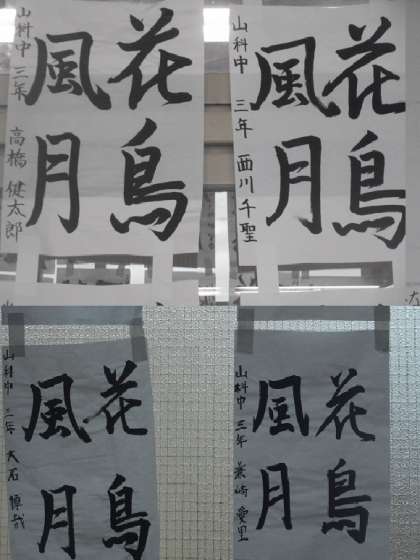 花鳥
風月
山科中 三年 高橋 健太郎
花鳥
風月
山科中 三年 西川 千聖
花鳥
風月
山科中 三年 大石
花鳥
風月
山科中 三年 愛里